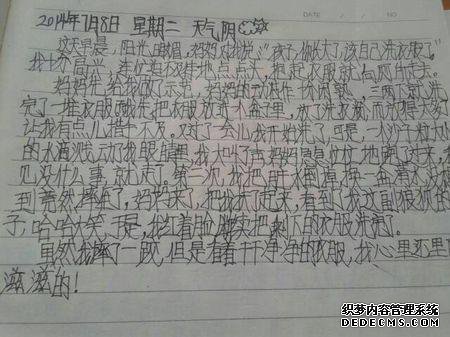 DATE
2014年7月8日 星期二 天气阴
这天早晨,阳光明媚,妈妈对我说:“孩子,你长大了,该自己洗衣服了。”
我十分高兴,连忙迫不及待地点点头,抱起衣服就
妈妈先给我做了示范,妈妈的动作 三两下就洗
完了一堆衣服 先把衣服放在水盆里,放了洗衣
让我有点儿措手不及,过了会儿我开始洗了,可是,一沙子粒大小
的水滴溅 了我眼睛里,我大叫了声妈妈 急急忙忙地跑了过来,
见没什么事,就走了,第二次,我把脏水倒掉换一盆清水,没想
到竟然摔 了,妈妈来了,把我扶了起来,看到了我这副狼狈的样
子,哈哈大笑,于是,我红着脸继续把剩下的衣服洗完了
虽然我摔了一跤,但是看着干干净净的衣服,我心里还里
滋滋的!
织梦内容管理系统
DEDECMS.COM